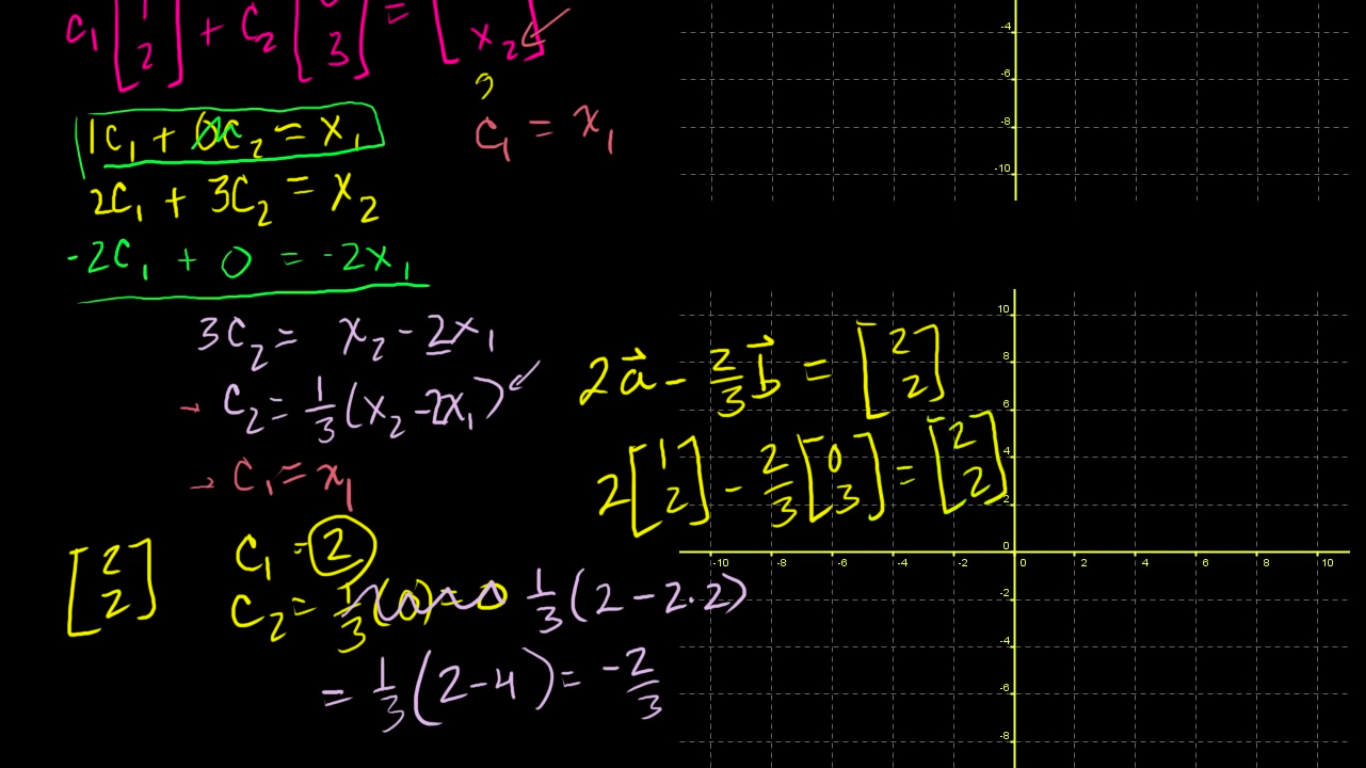 c₁ [1 2] + c₂ [0 3] = [x₂]
1c₁ + 0c₂ = x₁
c₁ = x₁
2c₁ + 3c₂ = x₂
-2c₁ + 0 = -2x₁
3c₂ = x₂ - 2x₁
→ c₂ = 1/3 (x₂ - 2x₁)
→ c₁ = x₁
[2 2] c₁ = 2
c₂ = 1/3 (0) = 0 1/3 (2 - 2·2)
= 1/3 (2 - 4) = -2/3
2a⃗ - 2/3 b⃗ = [2 2]
2 [1 2] - 2/3 [0 3] = [2 2]
-4
-6
-8
-10
10
8
6
4
2
0
-10 -8 -6 -4 -2 0 2 4 6 8 10
-2
-4
-6
-8